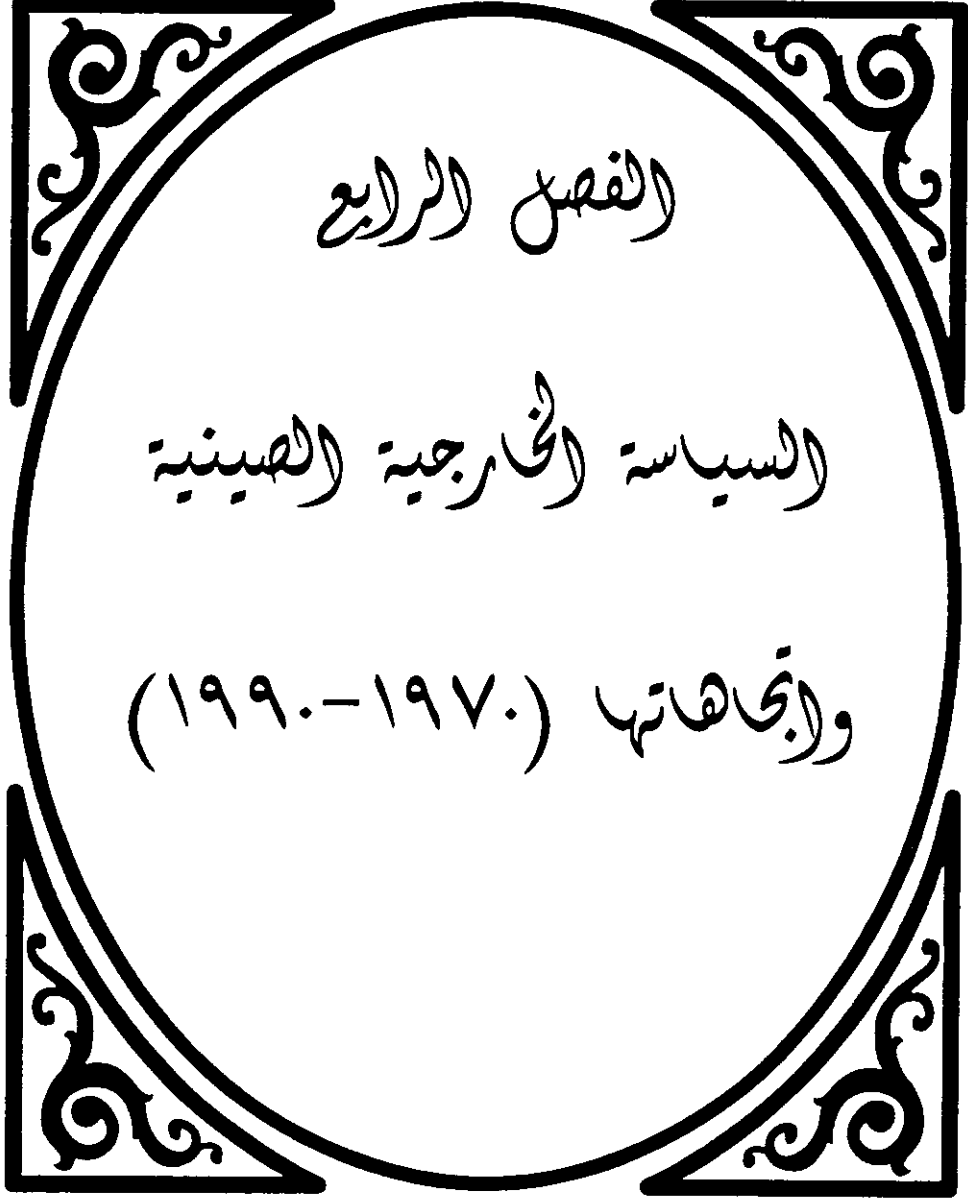 الفصل الرابع
السياسة الخارجية الصينية
واتجاهاتها (١٩٧٠-١٩٩٠)